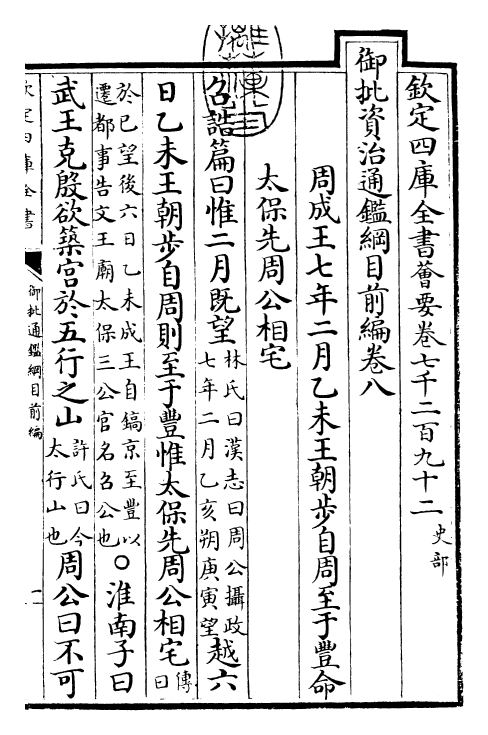 欽定四庫全書薈要卷七千二百九十二
史部
御批資治通鑑綱目前編卷八
周成王七年二月乙未王朝步自周至于豐命
太保先周公相宅
召誥篇曰惟二月既望
林氏曰漢志曰周公攝政
七年二月乙亥朔庚寅望
越六
日乙未王朝步自周則至于豐惟太保先周公相宅
傳
曰
於已望後六日乙未成王自鎬京至豐以
遷都事告文王廟太保三公官名召公也
○淮南子曰
武王克殷欲築宮於五行之山
許氏曰今
太行山也
周公曰不可
欽定四庫全書
御批通鑑綱目前編